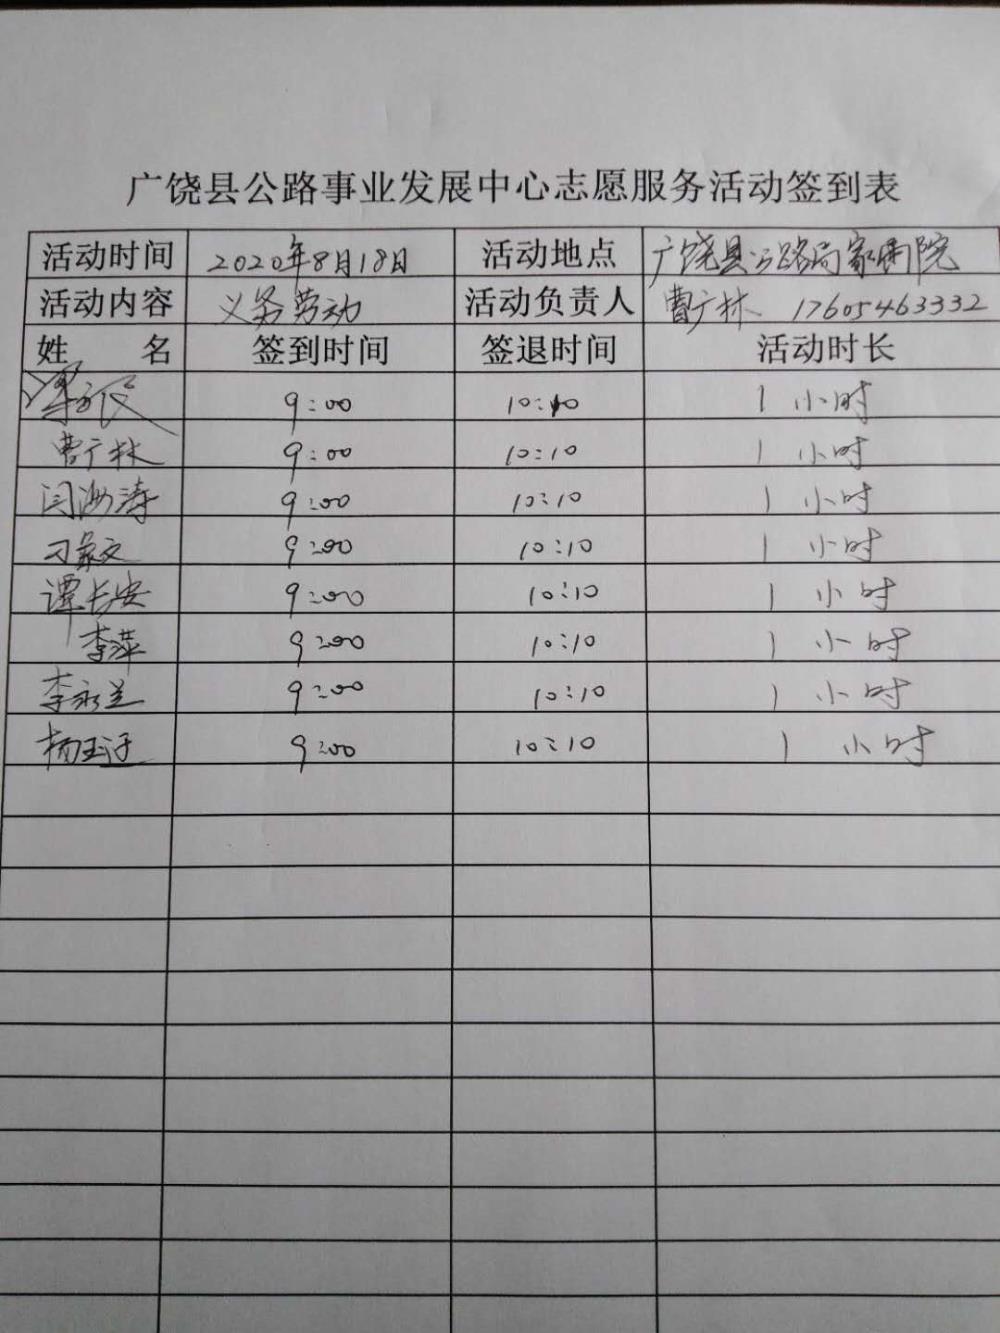 广饶县公路事业发展中心志愿服务活动签到表
活动时间 2020年8月18日 活动地点 广饶县公路局家属院
活动内容 义务劳动 活动负责人 曹广林 17605463332
姓 名 签到时间 签退时间 活动时长
9:00 10:10 1 小时
曹广林 9:00 10:10 1 小时
闫海涛 9:00 10:10 1 小时
刁象文 9:00 10:10 1 小时
谭长安 9:00 10:10 1 小时
李萍 9:00 10:10 1 小时
李永兰 9:00 10:10 1 小时
杨玉 9:00 10:10 1 小时